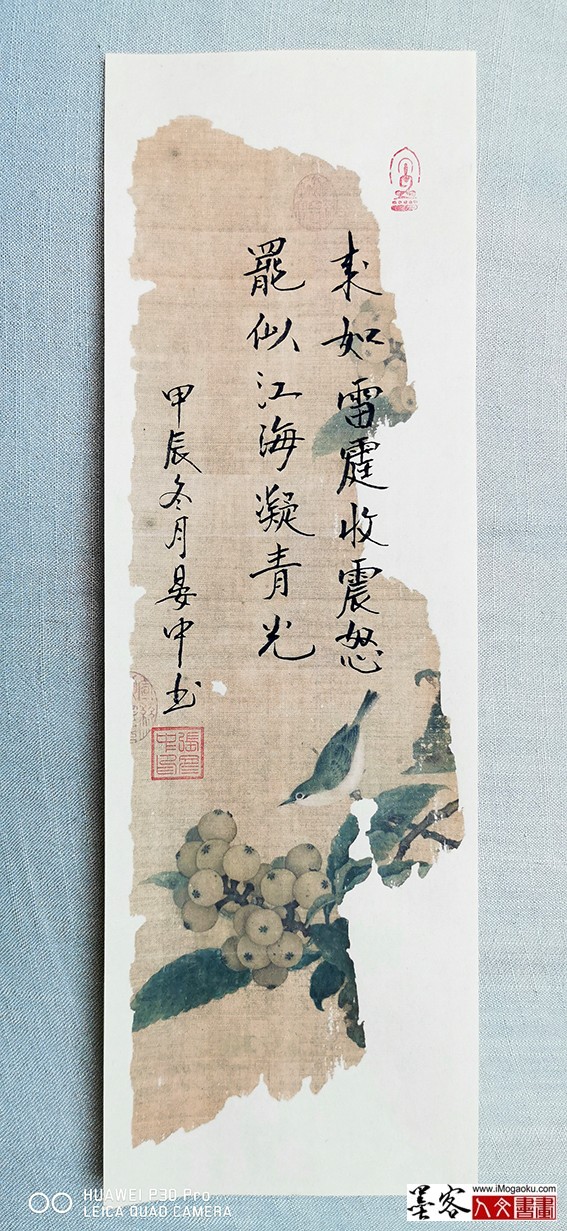 来如雷霆收震怒
罢似江海凝青光
甲辰冬月晏中书
HUAWEI P30 Pro
LEICA QUAD CAMERA
www.iMogaoku.com
墨客
人文书画